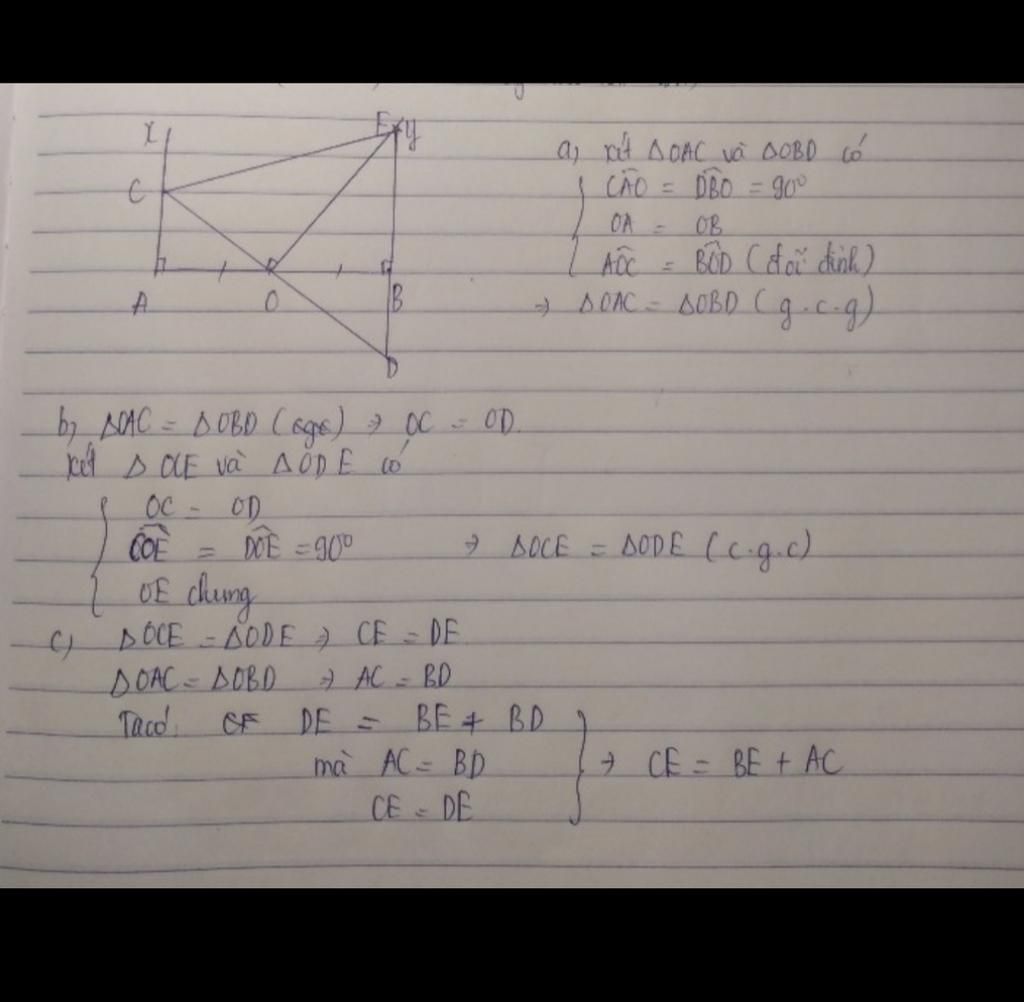 x
E y
C
A
O
B
D
a) xét ΔOAC và ΔOBD có
CÂO = DBO = 90°
OA = OB
AOC = BOD (đối đỉnh)
→ ΔOAC = ΔOBD (g.c.g)
b) ΔOAC = ΔOBD → OC = OD.
xét ΔOCE và ΔODE có
OC = OD
COE = DOE = 90° → ΔOCE = ΔODE (c.g.c)
OE chung
c) ΔOCE = ΔODE → CE = DE
ΔOAC = ΔOBD → AC = BD
Ta có: DE = BE + BD
mà AC = BD → CE = BE + AC
CE = DE